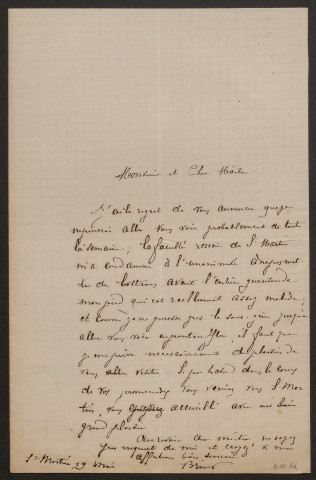 Monsieur et Cher Maître
J'ai le regret de vous annoncer que je
ne pourrai aller vous voir probablement de toute
la semaine ; la faculté réunie de St Martin
m'a condamné à l'unanimité à ne pas mettre
de bottines avant l'entière guérison de
mon pied qui est réellement assez malade ;
et comme je ne pousse pas le jusque
aller vous voir en pantoufles, il faut que
je me prive nécessairement du plaisir de
vous aller visiter. Si par hasard dans le cours
de vos promenades vous veniez vers St Mar
tin, vous accueilli avec un bien
grand plaisir
Au revoir cher maître, ne soyez
pas inquiet de moi et croyez à mon
affection bien sincère
St Martin 29 Mai